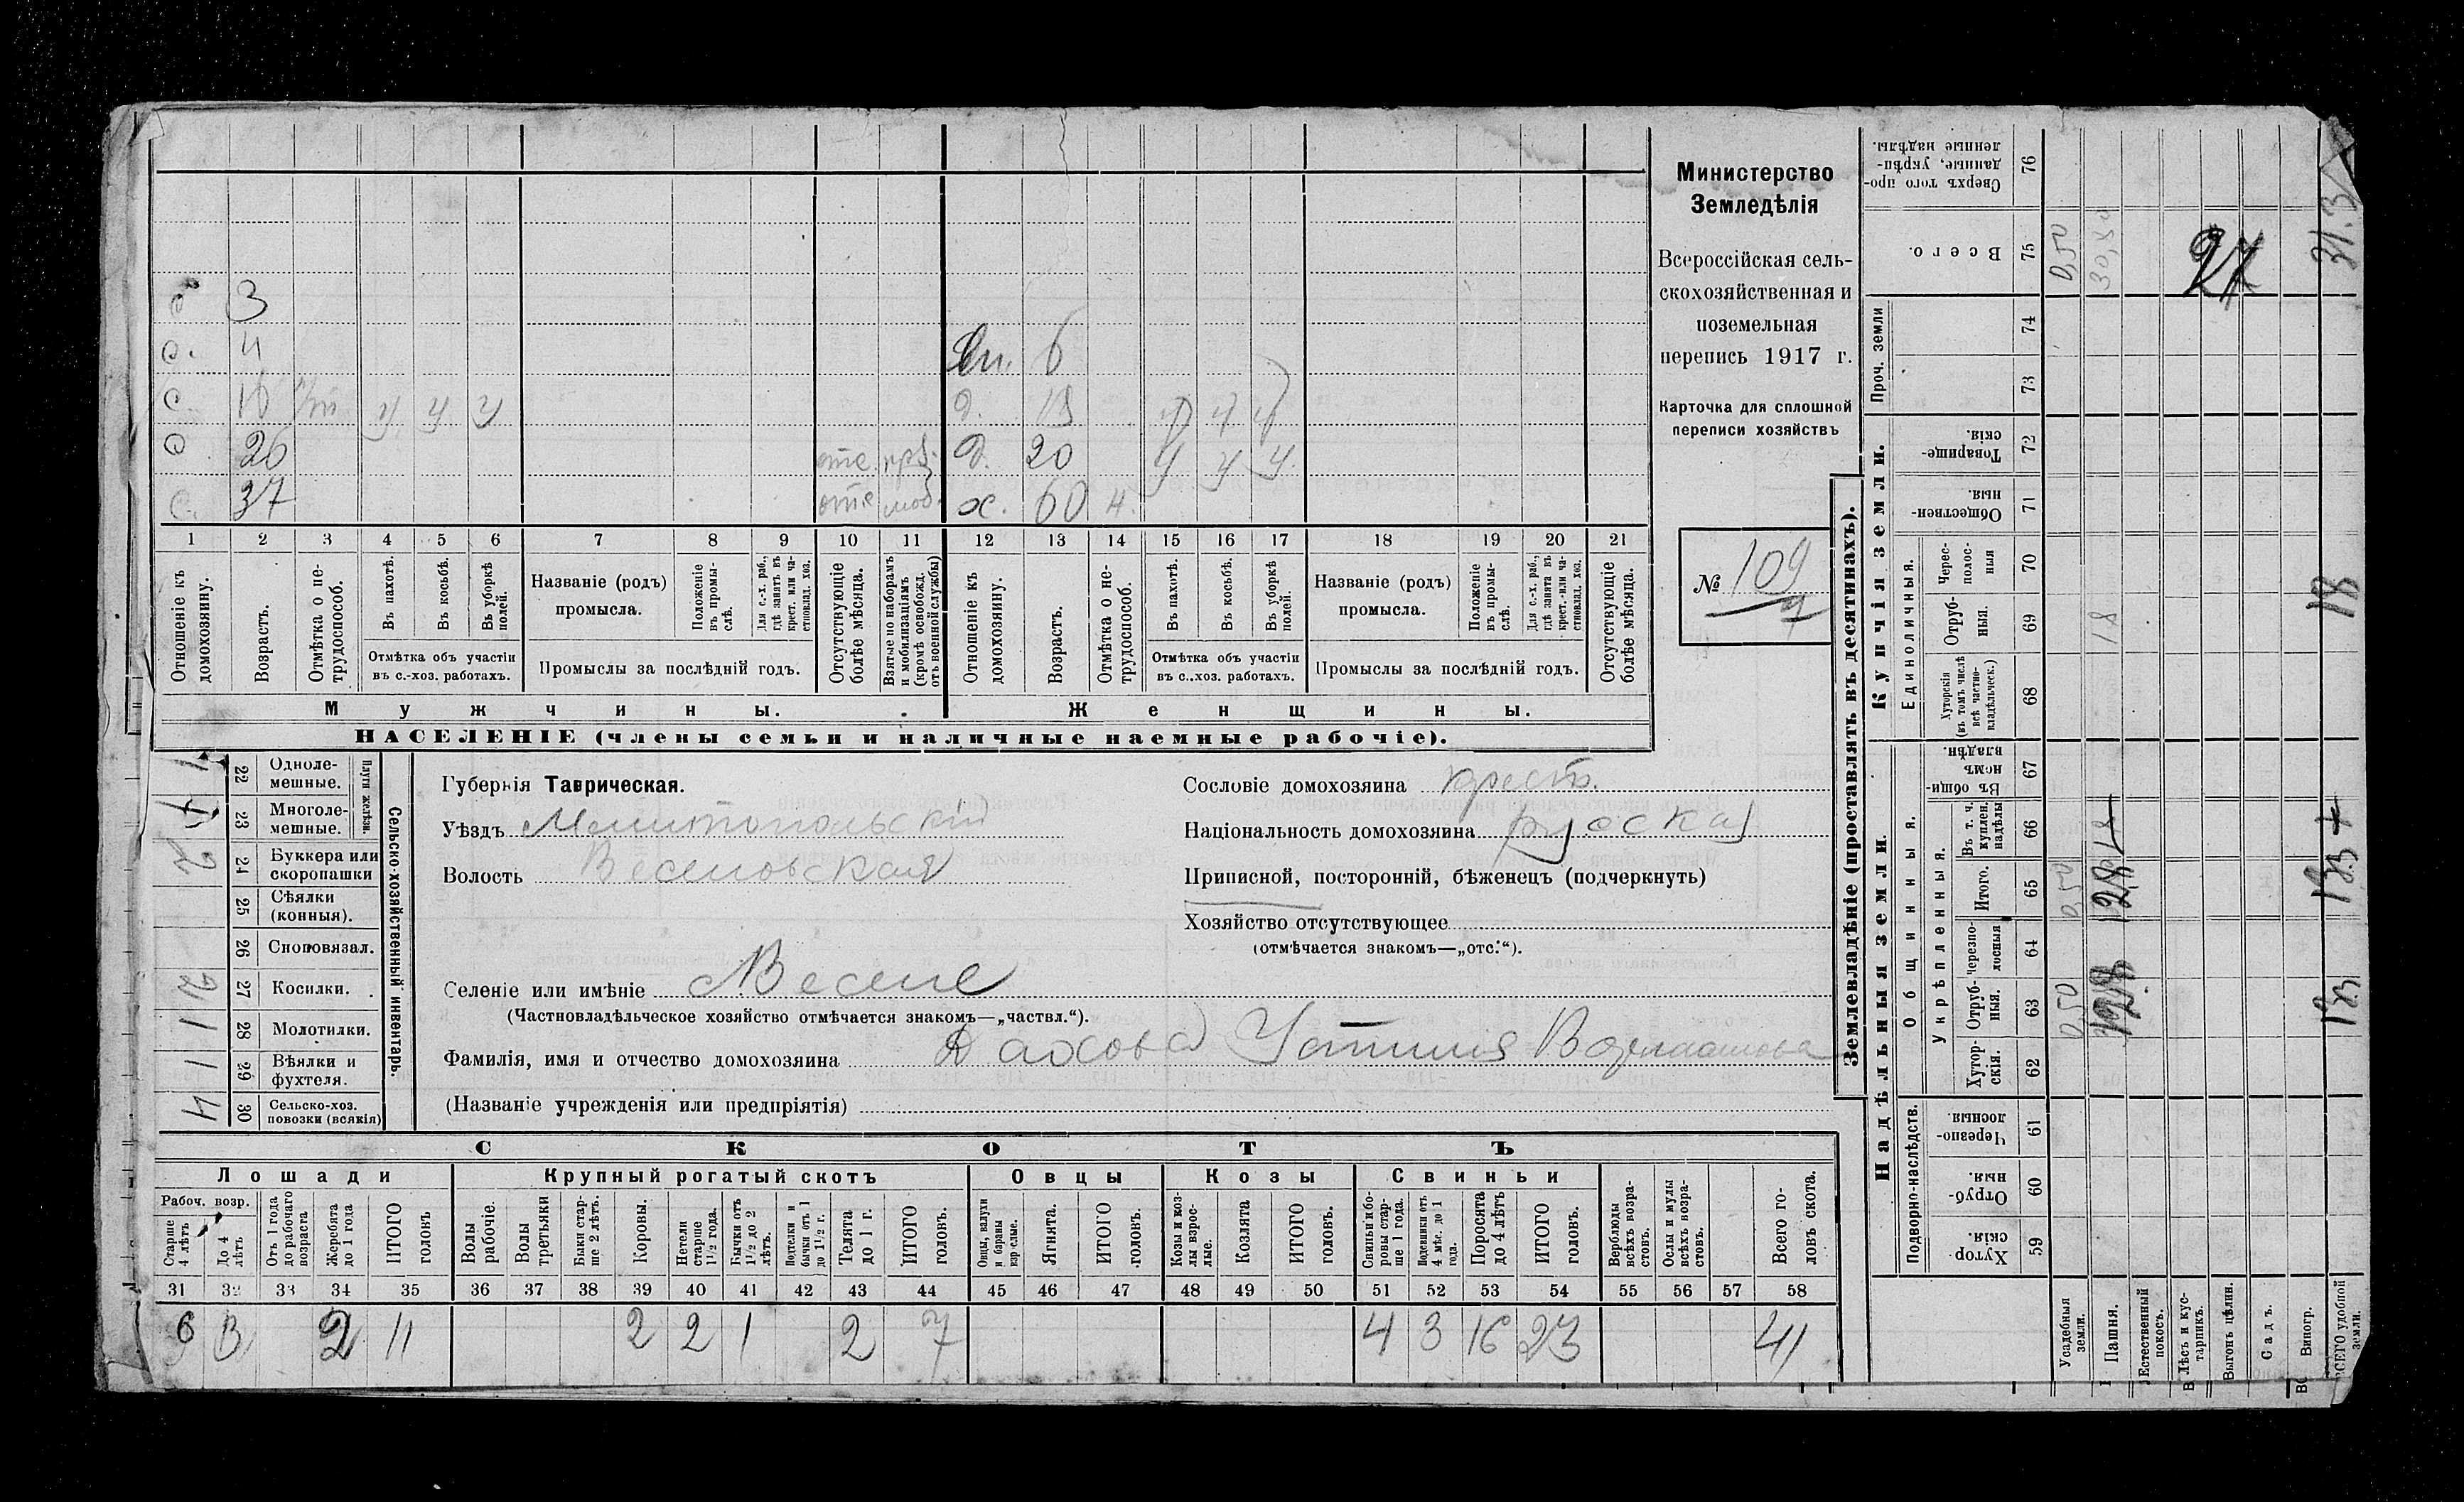 3
4
вн. 6
с. 16 у у у д. 13 у у у
26 отс. д. 20 у у у
с. 37 отс. моб. х. 60 н.
1 2 3 4 5 6 7 8 9 10 11 12 13 14 15 16 17 18 19 20 21
Отношеніе къ домохозяину.
Возрастъ.
Отмѣтка о нетрудоспособ.
Въ пахотѣ.
Въ косьбѣ.
Въ уборкѣ полей.
Отмѣтка объ участіи
въ с.-хоз. работахъ.
Названіе (родъ)
промысла.
Положеніе въ промыслѣ.
Для с.-х. раб., гдѣ занятъ въ крест. или частновлад. хоз.
Промыслы за послѣдній годъ.
Отсутствующіе болѣе мѣсяца.
Взятые по наборамъ и мобилизаціямъ (кромѣ освобожд. отъ военной службы)
Отношеніе къ домохозяину.
Возрастъ.
Отмѣтка о нетрудоспособ.
Въ пахотѣ.
Въ косьбѣ.
Въ уборкѣ полей.
Отмѣтка объ участіи
въ с.-хоз. работахъ.
Названіе (родъ)
промысла.
Положеніе въ промыслѣ.
Для с.-х. раб., гдѣ занята въ крест. или частновлад. хоз.
Промыслы за послѣдній годъ.
Отсутствующіе болѣе мѣсяца.
Мужчины. Женщины.
НАСЕЛЕНІЕ (члены семьи и наличные наемные рабочіе).
Министерство
Земледѣлія
Всероссійская сель-
скохозяйственная и
поземельная
перепись 1917 г.
Карточка для сплошной
переписи хозяйствъ
№ 109
Сельско-хозяйственный инвентарь.
Плуги желѣзн.
1 22 Однолемешные.
1 23 Многолемешные.
2 24 Буккера или скоропашки
25 Сѣялки (конныя).
26 Сноповязал.
2 27 Косилки.
1 28 Молотилки.
1 29 Вѣялки и фухтеля.
4 30 Сельско-хоз. повозки (всякія)
Губернія Таврическая.
Уѣздъ Мелитопольскій
Волость Веселовская
Селеніе или имѣніе Веселе
(Частновладѣльческое хозяйство отмѣчается знакомъ—„частвл.“).
Фамилія, имя и отчество домохозяина
(Названіе учрежденія или предпріятія)
Сословіе домохозяина крест.
Національность домохозяина руская
Приписной, посторонній, бѣженецъ (подчеркнуть)
Хозяйство отсутствующее
(отмѣчается знакомъ—„отс.“).
СКОТЪ
Лошади Крупный рогатый скотъ Овцы Козы Свиньи
Рабоч. возр.
Старше 4 лѣтъ
До 4 лѣтъ
Отъ 1 года до рабочаго возраста
Жеребята до 1 года
ИТОГО головъ
Волы рабочіе.
Волы третьяки
Быки старше 2 лѣтъ.
Коровы.
Нетели старше 1 1/2 года.
Бычки отъ 1 1/2 до 2 лѣтъ.
Подтелки и бычки отъ 1 до 1 1/2 г.
Телята до 1 г.
ИТОГО головъ.
Овцы, валухи и бараны взрослые.
Ягнята.
ИТОГО головъ.
Козы и козлы взрослые.
Козлята
ИТОГО головъ.
Свиньи и боровы старше 1 года.
Подсвинки отъ 4 мѣс. до 1 года.
Поросята до 4 лѣтъ
ИТОГО головъ.
Верблюды всѣхъ возрастовъ.
Ослы и мулы всѣхъ возрастовъ.
Всего головъ скота.
31 32 33 34 35 36 37 38 39 40 41 42 43 44 45 46 47 48 49 50 51 52 53 54 55 56 57 58
2 11 2 2 1 2 7 4 3 16 23 41
Землевладѣніе (проставлять въ десятинахъ).
Надѣльныя земли. Купчія земли.
Проч. земли
Подворно-наслѣдств.
Общинныя.
Укрѣпленныя.
Единоличныя.
Сверхъ того проданные, укрѣпленные надѣлы. 76
Всего. 75 0,50 27 31.3
74
73
Товарищескія. 72
Общественныя. 71
Черезполосныя 70
Отрубныя. 69 18 18
Хуторскія (въ томъ числѣ всѣ частновладѣльческ.) 68
Въ общиномъ владѣн. 67
Въ т. ч. куплен. надѣлы 66
Итого. 65 0,50
Черезполосныя 64
Отрубныя. 63 0,50
Хуторскія. 62
Черезполосныя 61
Отрубныя 60
Хуторскія. 59
Усадебныя земли.
Пашня.
Естественный покосъ.
Лѣсъ и кустарникъ.
Выгонъ цѣлин.
Садъ.
Виногр.
ВСЕГО удобной земли.